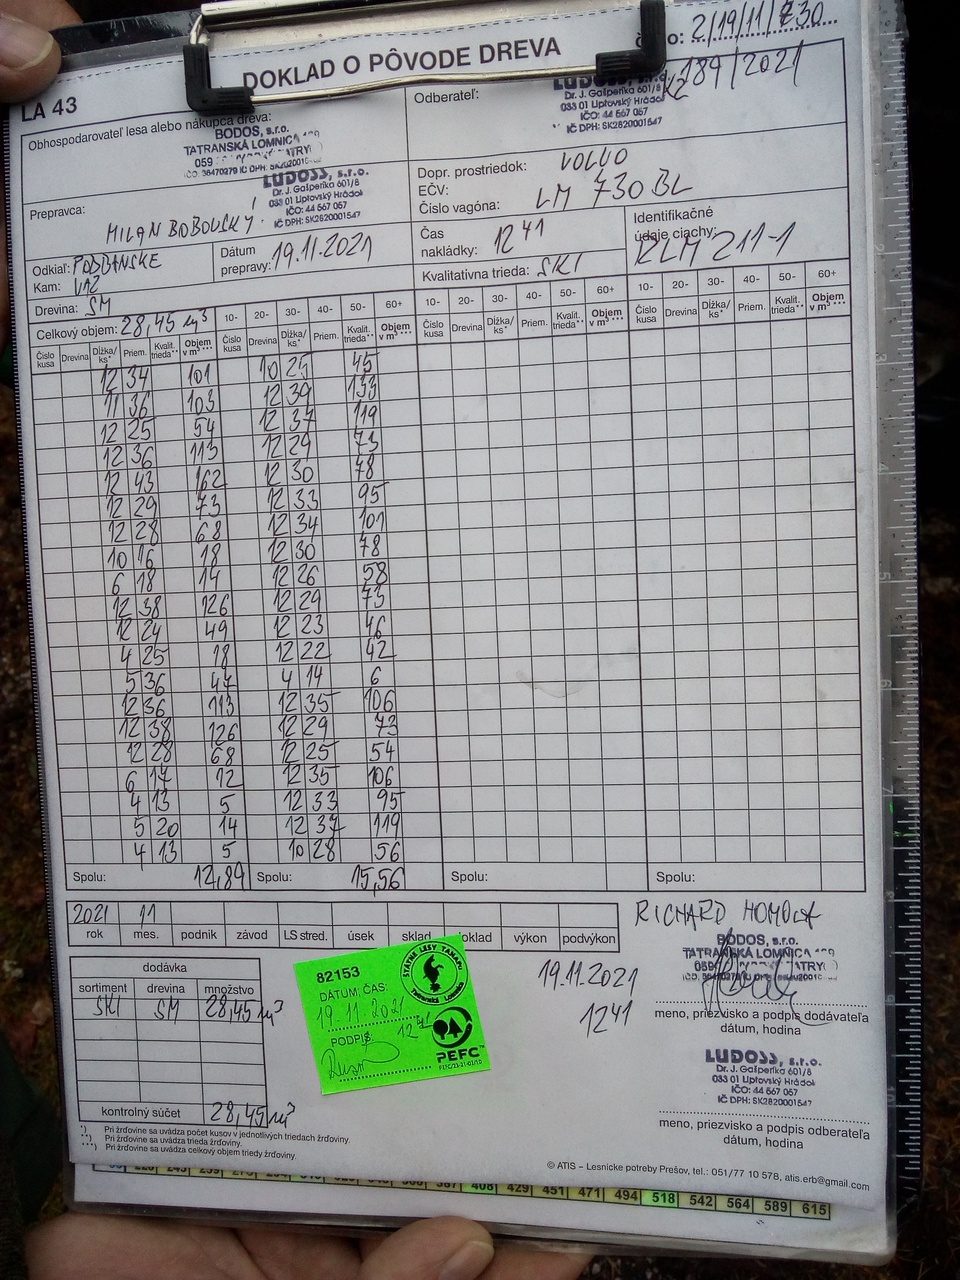 DOKLAD O PÔVODE DREVA
LA 43
číslo: 2/19/11/230
189/2021
Obhospodarovateľ lesa alebo nákupca dreva:
BODOS, s.r.o.
TATRANSKÁ LOMNICA
059
Odberateľ:
LUDOSS, s.r.o.
Dr. J. Gašperíka 601/8
033 01 Liptovský Hrádok
IČO: 44 567 057
IČ DPH: SK2820001547
Prepravca:
MILAN BOBOVSKÝ
LUDOSS, s.r.o.
Dr. J. Gašperíka 601/8
033 01 Liptovský Hrádok
IČO: 44 567 057
IČ DPH: SK2820001547
Dopr. prostriedok: VOLVO
EČV: LM 730 BL
Číslo vagóna:
Odkiaľ: PODBANSKE
Kam: VAŽ
Dátum prepravy: 19.11.2021
Čas nakládky: 12 41
Identifikačné údaje ciachy: RLM 211-1
Kvalitatívna trieda: SKI
Drevina: SM
Celkový objem: 28,45 m³
10- 20- 30- 40- 50- 60+ 10- 20- 30- 40- 50- 60+ 10- 20- 30- 40- 50- 60+
Číslo kusa Drevina Dĺžka/ks* Priem. Kvalit. trieda** Objem v m³*** Číslo kusa Drevina Dĺžka/ks* Priem. Kvalit. trieda** Objem v m³*** Číslo kusa Drevina Dĺžka/ks* Priem. Kvalit. trieda** Objem v m³*** Číslo kusa Drevina Dĺžka/ks* Priem. Kvalit. trieda** Objem v m³***
12 34 101 10 25 45
11 36 103 12 39 133
12 25 54 12 37 119
12 36 113 12 29 73
12 43 162 12 30 78
12 29 73 12 33 95
12 28 68 12 34 101
10 16 18 12 30 78
6 18 14 12 26 58
12 38 126 12 29 73
12 24 49 12 23 46
4 25 18 12 22 42
5 36 47 4 14 6
12 36 113 12 35 106
12 38 126 12 29 73
12 28 68 12 25 54
6 17 12 12 35 106
4 13 5 12 33 95
5 20 14 12 37 119
4 13 5 10 28 56
Spolu: 12,89 Spolu: 15,56 Spolu: Spolu:
2021 11
rok mes. podnik závod LS stred. úsek sklad doklad výkon podvýkon
RICHARD
BODOS, s.r.o.
TATRANSKÁ LOMNICA
19.11.2021
12 41
meno, priezvisko a podpis dodávateľa
dátum, hodina
dodávka
sortiment drevina množstvo
SKI SM 28,45 m³
kontrolný súčet 28,45 m³
82153
DÁTUM: ČAS:
19.11.2021
12 41
PODPIS:
ŠTÁTNE LESY TANAPu
Tatranská Lomnica
PEFC™
LUDOSS, s.r.o.
Dr. J. Gašperíka 601/8
033 01 Liptovský Hrádok
IČO: 44 567 057
IČ DPH: SK2820001547
meno, priezvisko a podpis odberateľa
dátum, hodina
*) Pri žrďovine sa uvádza počet kusov v jednotlivých triedach žrďoviny.
**) Pri žrďovine sa uvádza trieda žrďoviny.
***) Pri žrďovine sa uvádza celkový objem triedy žrďoviny.
© ATIS – Lesnícke potreby Prešov, tel.: 051/77 10 578, atis.erb@gmail.com
408 429 451 471 494 518 542 564 589 615